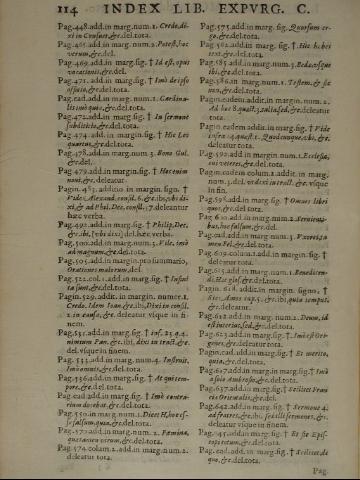 114 INDEX LIB. EXPVRG. C.
Pag.448.add.in marg.num.1. Credo. di-
xi in Consuet,&c.del.tota.
Pag.465.add.in marg.num.2. Potest, hoc
verum,&c.del.
Pag.469.add in marg.fig. † Id est, opus
vacationis,&c.del.
Pag.471.add.in marg.fig. † Imò de ipso
officio,&c.del.tota.
Pag.ead.add.in marg.num.1. Cardina-
lis imò quis,&c.del.tota.
Pag.472.add.in marg.fig. † In sermone
sublilitio,&c.del.tota.
Pag.474.add.in margin.fig. † Hic Leo
quartus,&c.del.tota.
Pag.478.add.in marg.num.3. Bono Gul.
&c.del.
Pag.479.add.in margin.fig. † Hac enim
nomi,&c.deleatur.
Pagin.483.additio in margin.sign. †
Vide Alexand.consil.6.&c.ibi, vbi di-
xi,& ad Phil.Dec.consil.17.deleantur
hæc verba.
Pag.492.add.in marg.fig. † Philip. Dec.
&c.ibi, vbi dixi, del.hæc verba.
Pag.500.add.in marg.num.5. Vide, imò
ad magnum,&c.del.tota.
Pag.505.add.in margin.prosummario,
Orationes malorum, del.
Pag.522.col.1.add.in marg.fig. † Infini-
ta sunt,&c.del.tota.
Pagin.529.addit.in margin.numer.1.
Credo. Idem Ioan,&c.ibi, Dixi in consil.
2.in causa,&c.deleatur vsque in fi-
nem.
Pag.531.add.in marg.fig. † inf.23.q.4.
nimium Pan.&c.ibi, dixi in tract.&c.
del.vsque in finem.
Pag.533.add.in marg.num.4. Inseruit,
Imò omnis,&c.del.tota.
Pag.536.add.in marg.fig. † At qui tem-
pore,&c.del.tota.
Pag.ead.add.in marg.fig. † Imò contra-
rium docebat,&c.del.tota.
Pag.550.in marg.num.1. Dicet H, hoc es-
se falsum,quia,&c.del.tota.
Pag.570.add.in marg.num.2. Fœmina,
quotannis virum,&c.del.tota.
Pag.574.colum.2.add.in marg.num.2.
deleatur tota.
Pag.575.add.in marg.fig. Quorsum er-
go,&c.del.tota.
Pag.582.add.in marg.fig. † Hic habet
text.&c.del.tota.
Pag.585.add.in marg.num.5. Beda, ásque
ibi,&c.del.tota.
Pag.586.in marg.num.1. Testem, & sic
non,&c.del.tota.
Pagin.eadem.addit.in margin.num.2.
Ad hec 8.quæst.3.salua sed,&c.deleatur
tota.
Pagin.eadem addit.in margin.fig. † Vide
infra 14.quæst.1. Quodcunque.ibi,&c.
deleatur tota.
Pag.592.add.in margin.num.1. Ecclesia,
qui veteres,&c.del.tota.
Pag.eadem.colum.2.addit.in marg.
num.3.del.verba in tract.&c.vsque
in fin.
Pag.598.add.in marg.fig. † Omnes libri
quos,&c.del.tota.
Pag.600.add.in marg.num.2. Seruienti-
bus, hoc falsum,&c.del.
Pag.ead.add.in marg.num.3. Vxores, ta-
men Pet.&c.del.tota.
Pag.609.colum.2.add.in marg.fig. †
deleatur tota.
Pag.615.add.in marg.num.1. Benedicen-
di. Hac glos,&c.del.tota.
Pagin.618.addit.in margin.signo, †
Siue, Limes cap.5.,&c.ibi, quia tempus,
&c.deleatur.
Pag.622.add.in marg.num.2. Deum, id
est historias, sed,&c.del.tota.
Pag.623.add.in marg.fig. †. Imò est Ori-
gines,&c.del.tota.
Pagin.ead.add.in marg.fig. † Et merito,
quia,&c.del.tota.
Pag.627.add.in marg.fig. † Imò à
socio Ambrosio,&c.del.tota.
Pag.637.add.in marg.fig. † Scilicet Fran-
cis Orientalis,&c.del.
Pag.642.add.in marg.fig. † Sermone 4.
ad fratres,&c.ibi, sed illi sermones,&c.
deleatur vsque in finem.
Pag.645.add.in marg.fig. † Et sic Epis-
coporum,&c.del.tota.
Pag.ead.add.in marg.fig. † Scilicet, de
qua,&c.del.tota.
Pag.